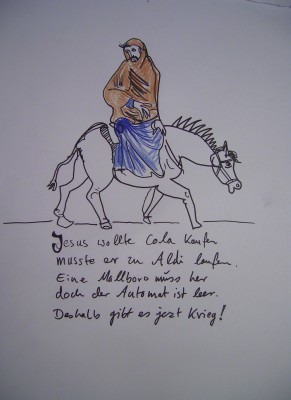 Jesus wollte Cola kaufen
musste er zu Aldi laufen.
Eine Mallboro muss her
doch der Automat ist leer.
Deshalb gibt es jezt Krieg!